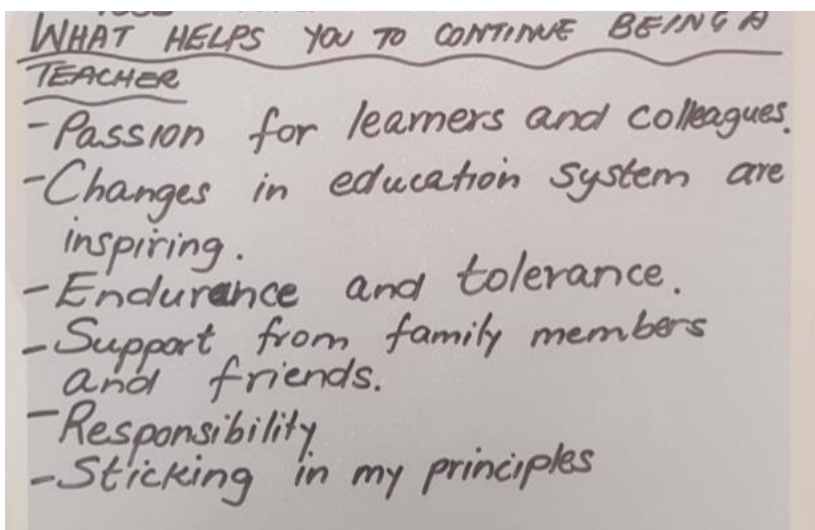 WHAT HELPS YOU TO CONTINUE BEING A
TEACHER
- Passion for learners and colleagues.
- Changes in education system are
inspiring.
- Endurance and tolerance.
- Support from family members
and friends.
- Responsibility
- Sticking in my principles